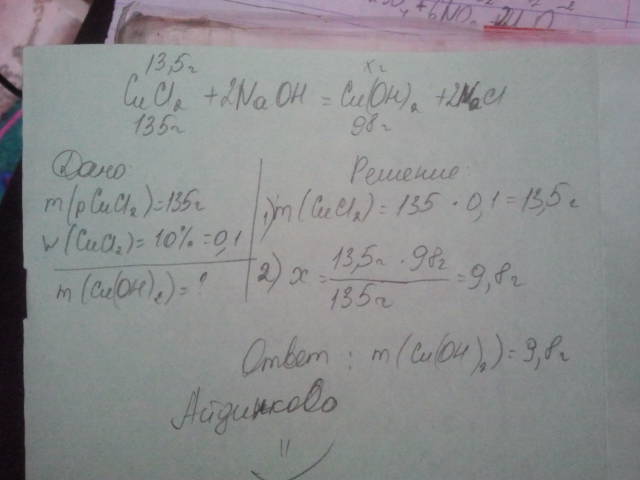 13,5г хг
CuCl₂ + 2NaOH = Cu(OH)₂ + 2NaCl
135г 98г
Дано
m(рCuCl₂)=135г
w(CuCl₂)=10%=0,1
m(Cu(OH)₂)=?
Решение
1) m(CuCl₂) = 135 · 0,1 = 13,5г
2) x = 13,5г · 98г / 135г = 9,8г
Ответ : m(Cu(OH)₂)=9,8г